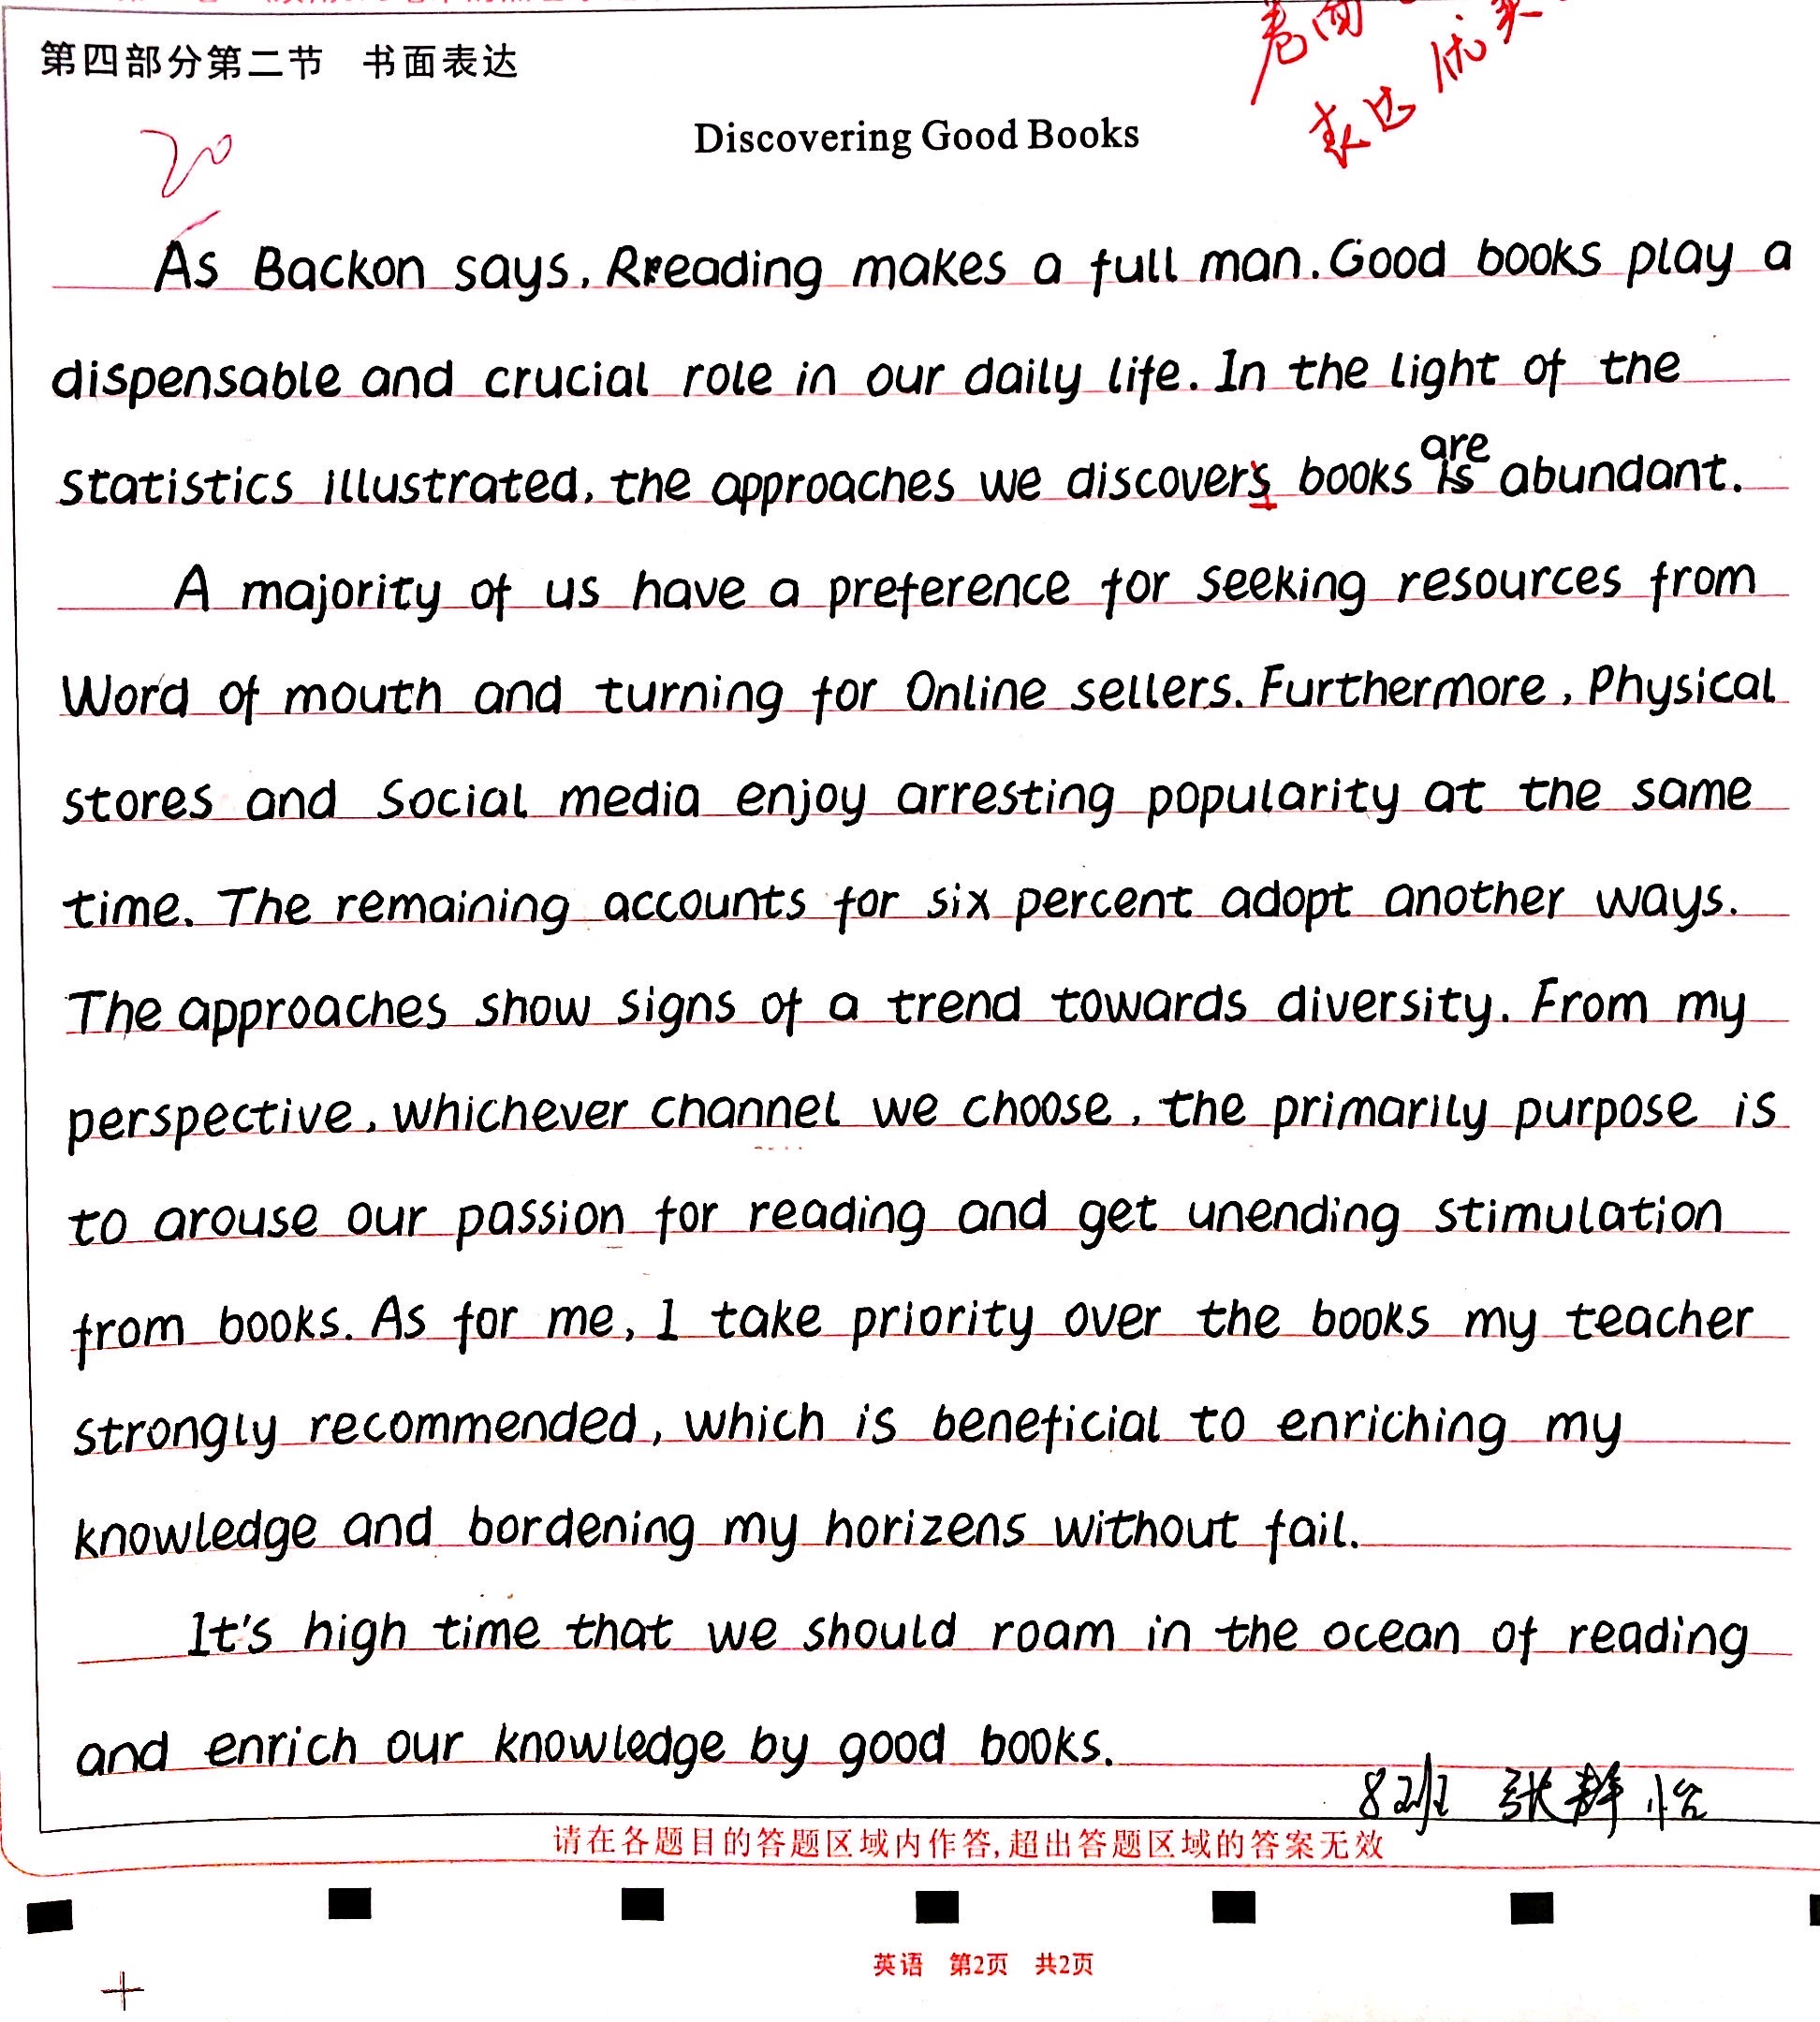 第四部分第二节 书面表达
表达优美
20
Discovering Good Books
As Backon says, Rreading makes a full man. Good books play a
dispensable and crucial role in our daily life. In the light of the
statistics illustrated, the approaches we discovers books is are abundant.
A majority of us have a preference for seeking resources from
Word of mouth and turning for Online sellers. Furthermore, Physical
stores and Social media enjoy arresting popularity at the same
time. The remaining accounts for six percent adopt another ways.
The approaches show signs of a trend towards diversity. From my
perspective, whichever channel we choose, the primarily purpose is
to arouse our passion for reading and get unending stimulation
from books. As for me, I take priority over the books my teacher
strongly recommended, which is beneficial to enriching my
knowledge and bordening my horizens without fail.
It's high time that we should roam in the ocean of reading
and enrich our knowledge by good books.
82班 张群怡
请在各题目的答题区域内作答,超出答题区域的答案无效
英语 第2页 共2页